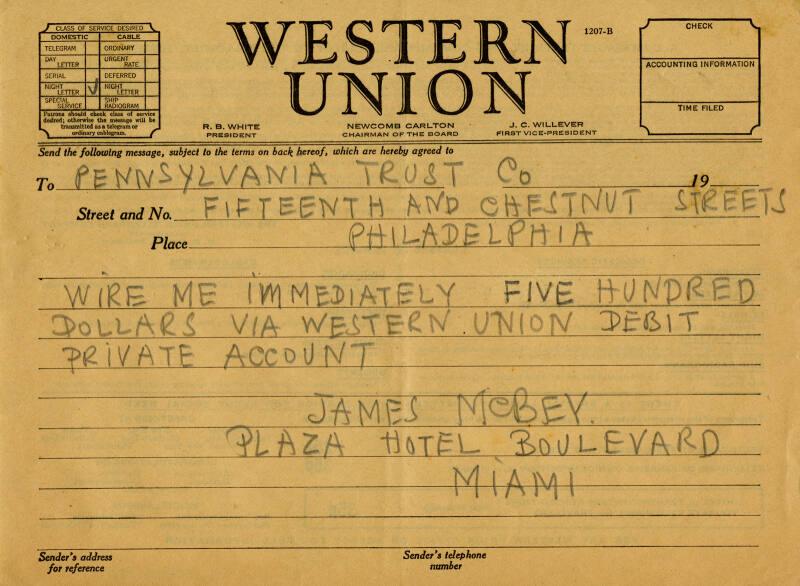 CLASS OF SERVICE DESIRED
DOMESTIC CABLE
TELEGRAM ORDINARY
DAY LETTER URGENT RATE
SERIAL DEFERRED
NIGHT LETTER ✓ NIGHT LETTER
SPECIAL SERVICE SHIP RADIOGRAM
Patrons should check class of service
desired; otherwise the message will be
transmitted as a telegram or
ordinary cablegram.
WESTERN
UNION
1207-B
CHECK
ACCOUNTING INFORMATION
TIME FILED
R. B. WHITE
PRESIDENT
NEWCOMB CARLTON
CHAIRMAN OF THE BOARD
J. C. WILLEVER
FIRST VICE-PRESIDENT
Send the following message, subject to the terms on back hereof, which are hereby agreed to
To PENNSYLVANIA TRUST Co 19
Street and No. FIFTEENTH AND CHESTNUT STREETS
Place PHILADELPHIA
WIRE ME IMMEDIATELY FIVE HUNDRED
DOLLARS VIA WESTERN UNION DEBIT
PRIVATE ACCOUNT
JAMES MCBEY.
PLAZA HOTEL BOULEVARD
MIAMI
Sender's address
for reference
Sender's telephone
number